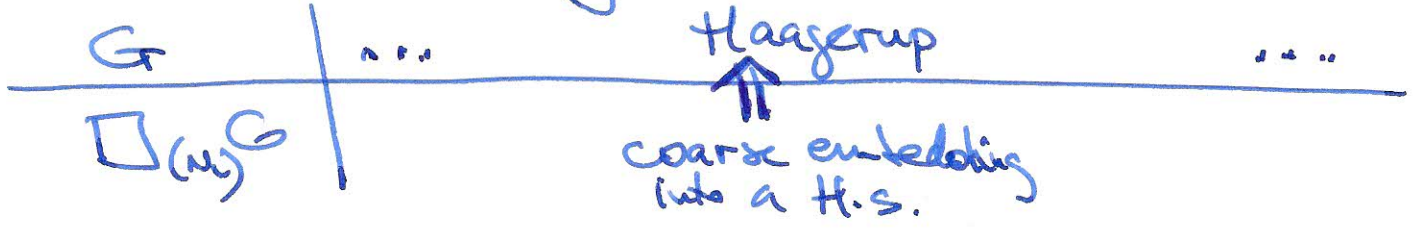 G ... Haagerup ....
⇑
□(Nᵢ)G coarse embedding
into a H.S.